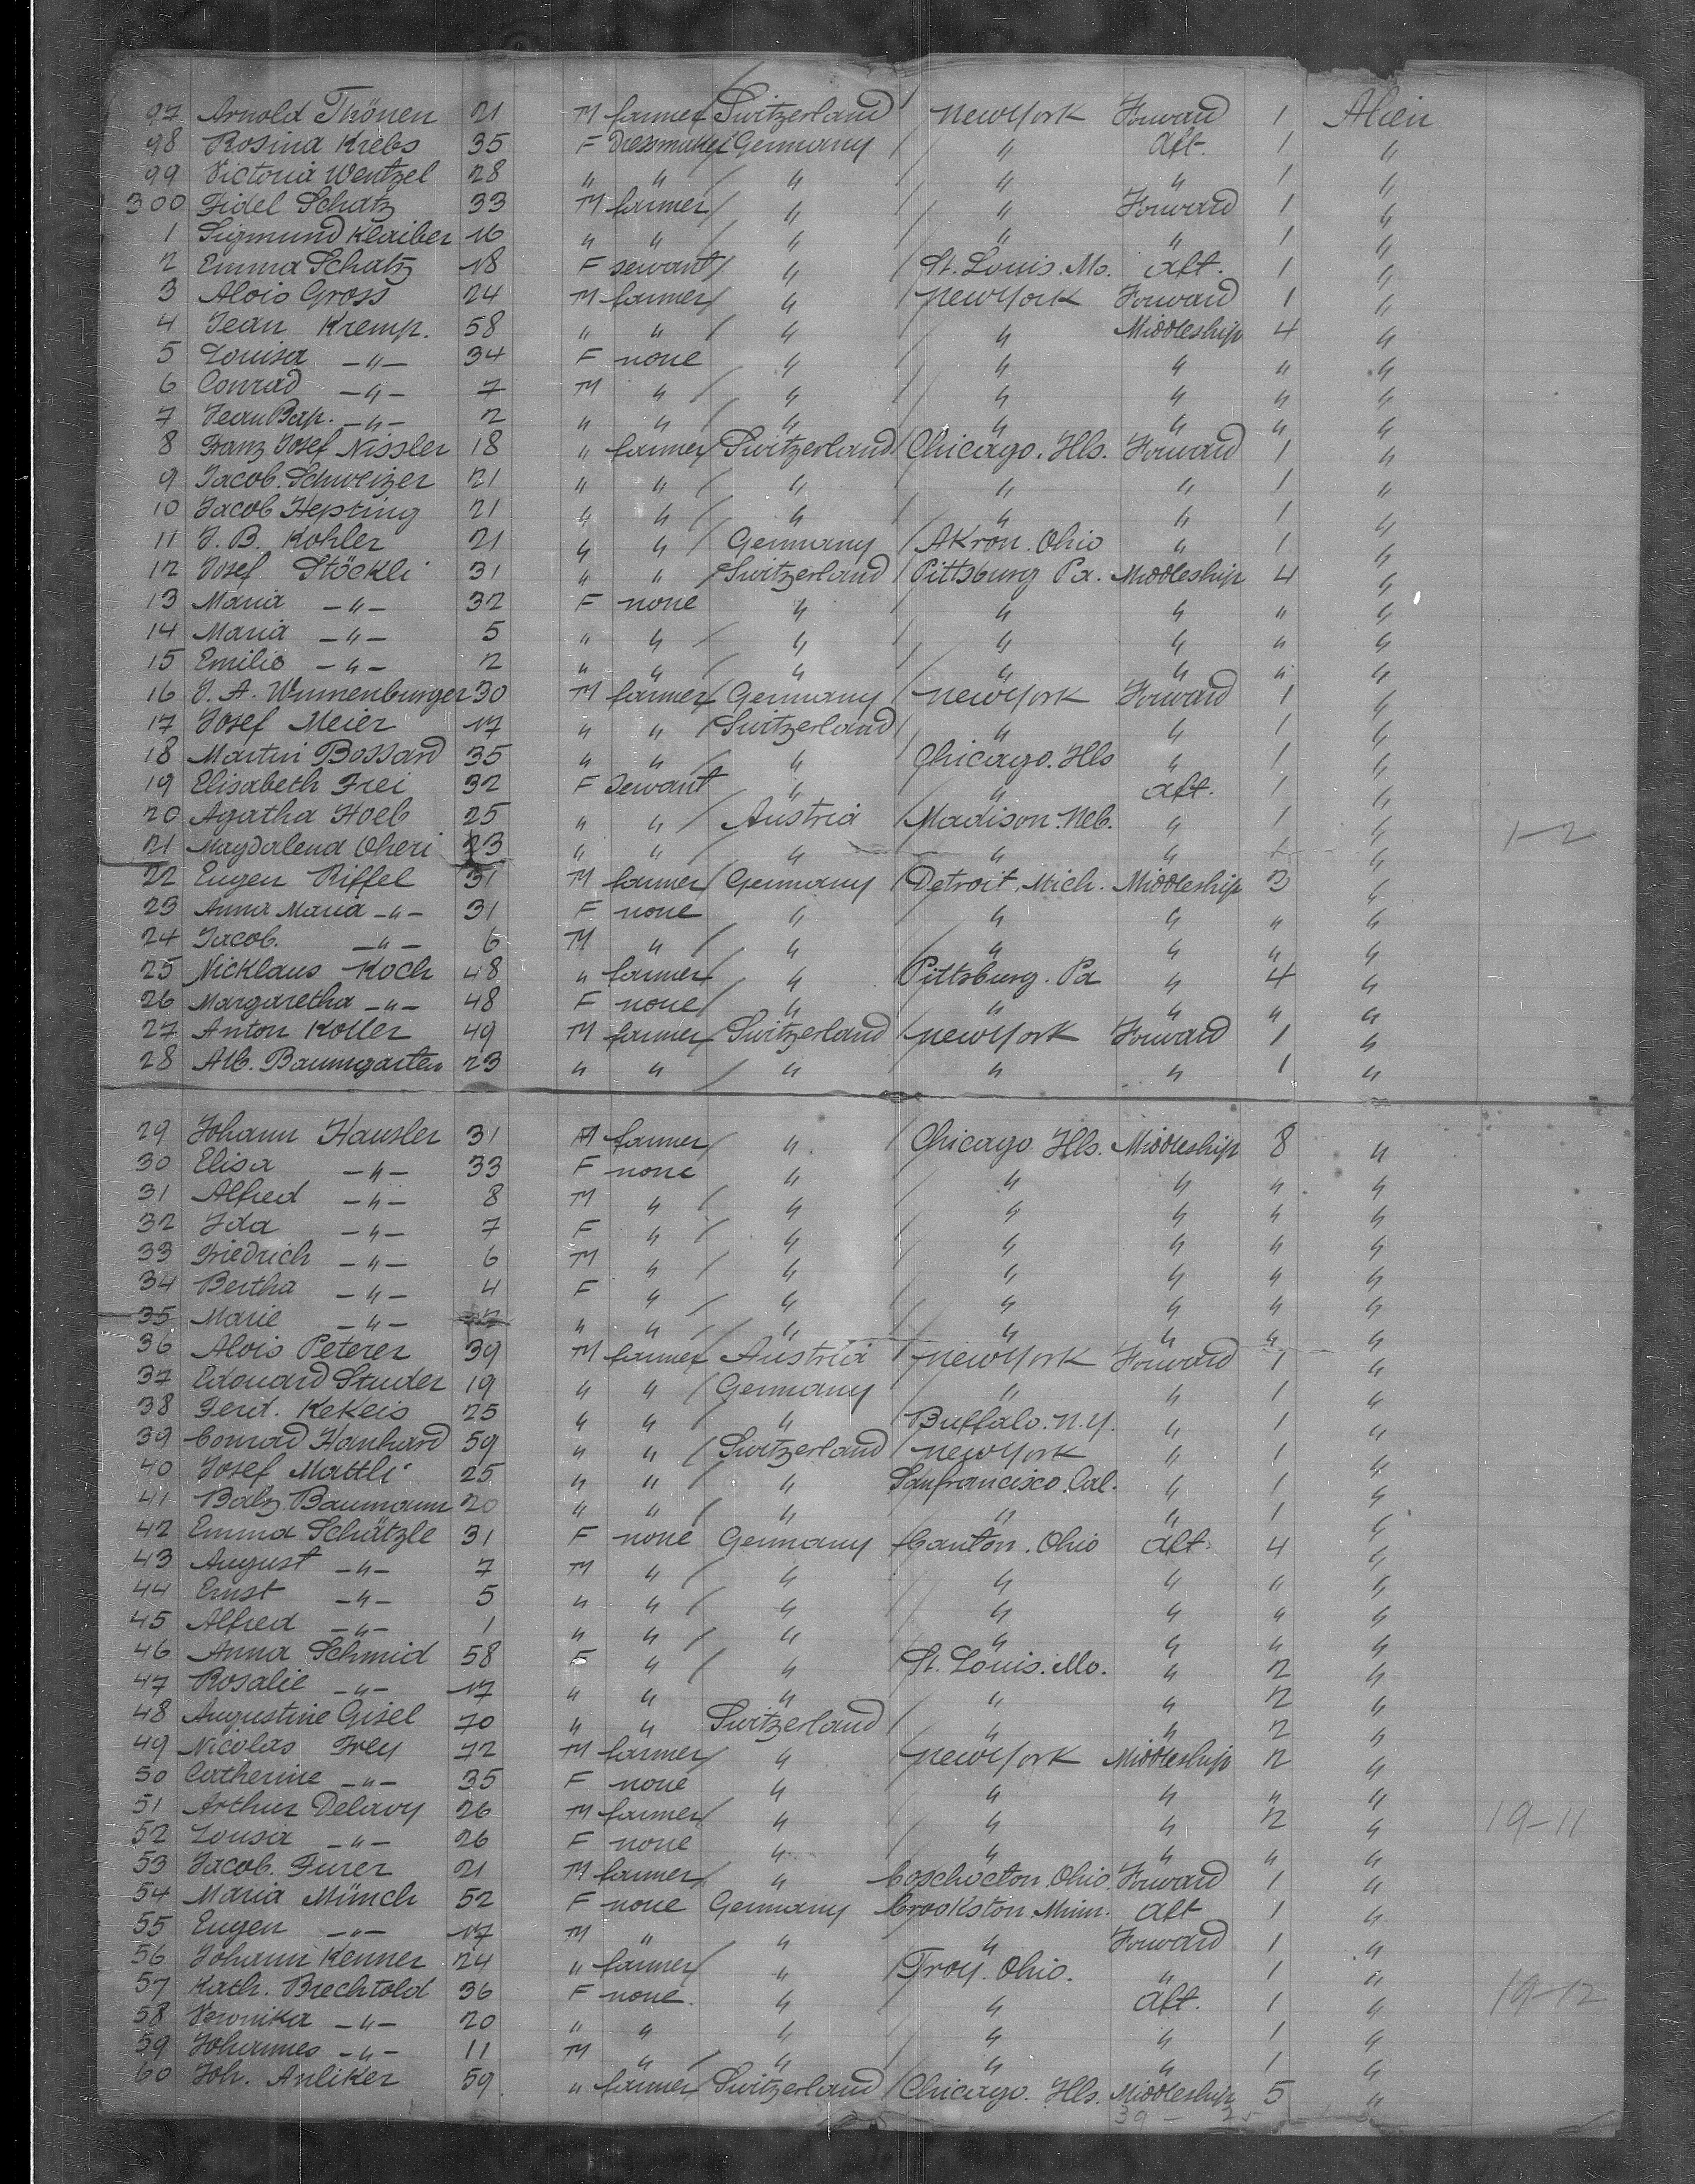 97 Arnold Thönen 21 M farmer Switzerland New York Forward 1 Alien
98 Rosina Krebs 35 F Dressmaker Germany " Aft. 1 "
99 Victoria Wentzel 28 " " " " " 1 "
300 Fidel Schatz 33 M farmer " " Forward 1 "
1 Sigmund Klaiber 16 " " " " " 1 "
2 Emma Schatz 18 F servant " St. Louis. Mo. Aft. 1 "
3 Alois Gross 24 M farmer " New York Forward 1 "
4 Jean Kremp. 58 " " " " Middleship 4 "
5 Louisa -"- 34 F none " " " " "
6 Conrad -"- 7 M " " " " " "
7 Jean Bap. -"- 2 " " " " " " "
8 Franz Josef Nissler 18 " farmer Switzerland Chicago. Ills. Forward 1 "
9 Jacob. Schweizer 21 " " " " " 1 "
10 Jacob Hepting 21 " " " " " 1 "
11 J. B. Kohler 21 " " Germany Akron. Ohio " 1 "
12 Josef Stöckli 31 " " Switzerland Pittsburg Pa. Middleship 4 "
13 Maria -"- 32 F none " " " " "
14 Maria -"- 5 " " " " " " "
15 Emilio -"- 2 " " " " " " "
16 J. A. Wunnenburger 30 M farmer Germany New York Forward 1 "
17 Josef Meier 17 " " Switzerland " " 1 "
18 Martin Bossard 35 " " " Chicago. Ills " 1 "
19 Elisabeth Frei 32 F Servant " " aft. 1 "
20 Agatha Hoeb 25 " " Austria Madison. Neb. " 1 " 1-2
21 Magdalena Oheri 23 " " " " " 1 "
22 Eugen Riffel 31 M farmer Germany Detroit, Mich. Middleship 3 "
23 Anna Maria -"- 31 F none " " " " "
24 Jacob. -"- 6 M " " " " " "
25 Nicklaus Koch 48 " farmer " Pittsburg. Pa " 4 "
26 Margaretha -"- 48 F none " " " " "
27 Anton Koller 49 M farmer Switzerland New York Forward 1 "
28 Alb. Baumgarten 23 " " " " " 1 "
29 Johann Hausler 31 M farmer " Chicago Ills. Middleship 8 "
30 Elisa -"- 33 F none " " " " "
31 Alfred -"- 8 M " " " " " "
32 Ida -"- 7 F " " " " " "
33 Friedrich -"- 6 M " " " " " "
34 Bertha -"- 4 F " " " " " "
35 Marie -"- " " " " " " "
36 Alois Peterer 39 M farmer Austria New York Forward 1 "
37 Edouard Studer 19 " " Germany " " 1 "
38 Ferd. Kekeis 25 " " " Buffalo. N.Y. " 1 "
39 Conrad Hanhard 59 " " Switzerland New York " 1 "
40 Josef Mattli 25 " " " Sanfrancisco. Cal. " 1 "
41 Balz Baumann 20 " " " " " 1 "
42 Emma Schätzle 31 F none Germany Canton. Ohio Aft. 4 "
43 August -"- 7 M " " " " " "
44 Ernst -"- 5 " " " " " " "
45 Alfred -"- 1 " " " " " " "
46 Anna Schmid 58 F " " St. Louis. Mo. " 2 "
47 Rosalie -"- 17 " " " " " 2 "
48 Augustine Gisel 70 " " Switzerland " " 2 "
49 Nicolas Frey 72 M farmer " New York Middleship 2 "
50 Catherine -"- 35 F none " " " " "
51 Arthur Delavy 26 M farmer " " " 2 " 19-11
52 Lousia -"- 26 F none " " " " "
53 Jacob. Furer 21 M farmer " Coschocton. Ohio. Forward 1 "
54 Maria Münch 52 F none Germany Crookston Minn. Aft 1 "
55 Eugen -"- 17 M " " " Forward 1 "
56 Johann Kenner 24 " farmer " Troy. Ohio. " 1 "
57 Kath. Brechtold 36 F none. " " Aft. 1 " 19-12
58 Veronika -"- 20 " " " " " 1 "
59 Johannes -"- 11 M " " " " 1 "
60 Joh. Anliker 59 " farmer Switzerland Chicago. Ills. Middleship 5 "
39 -